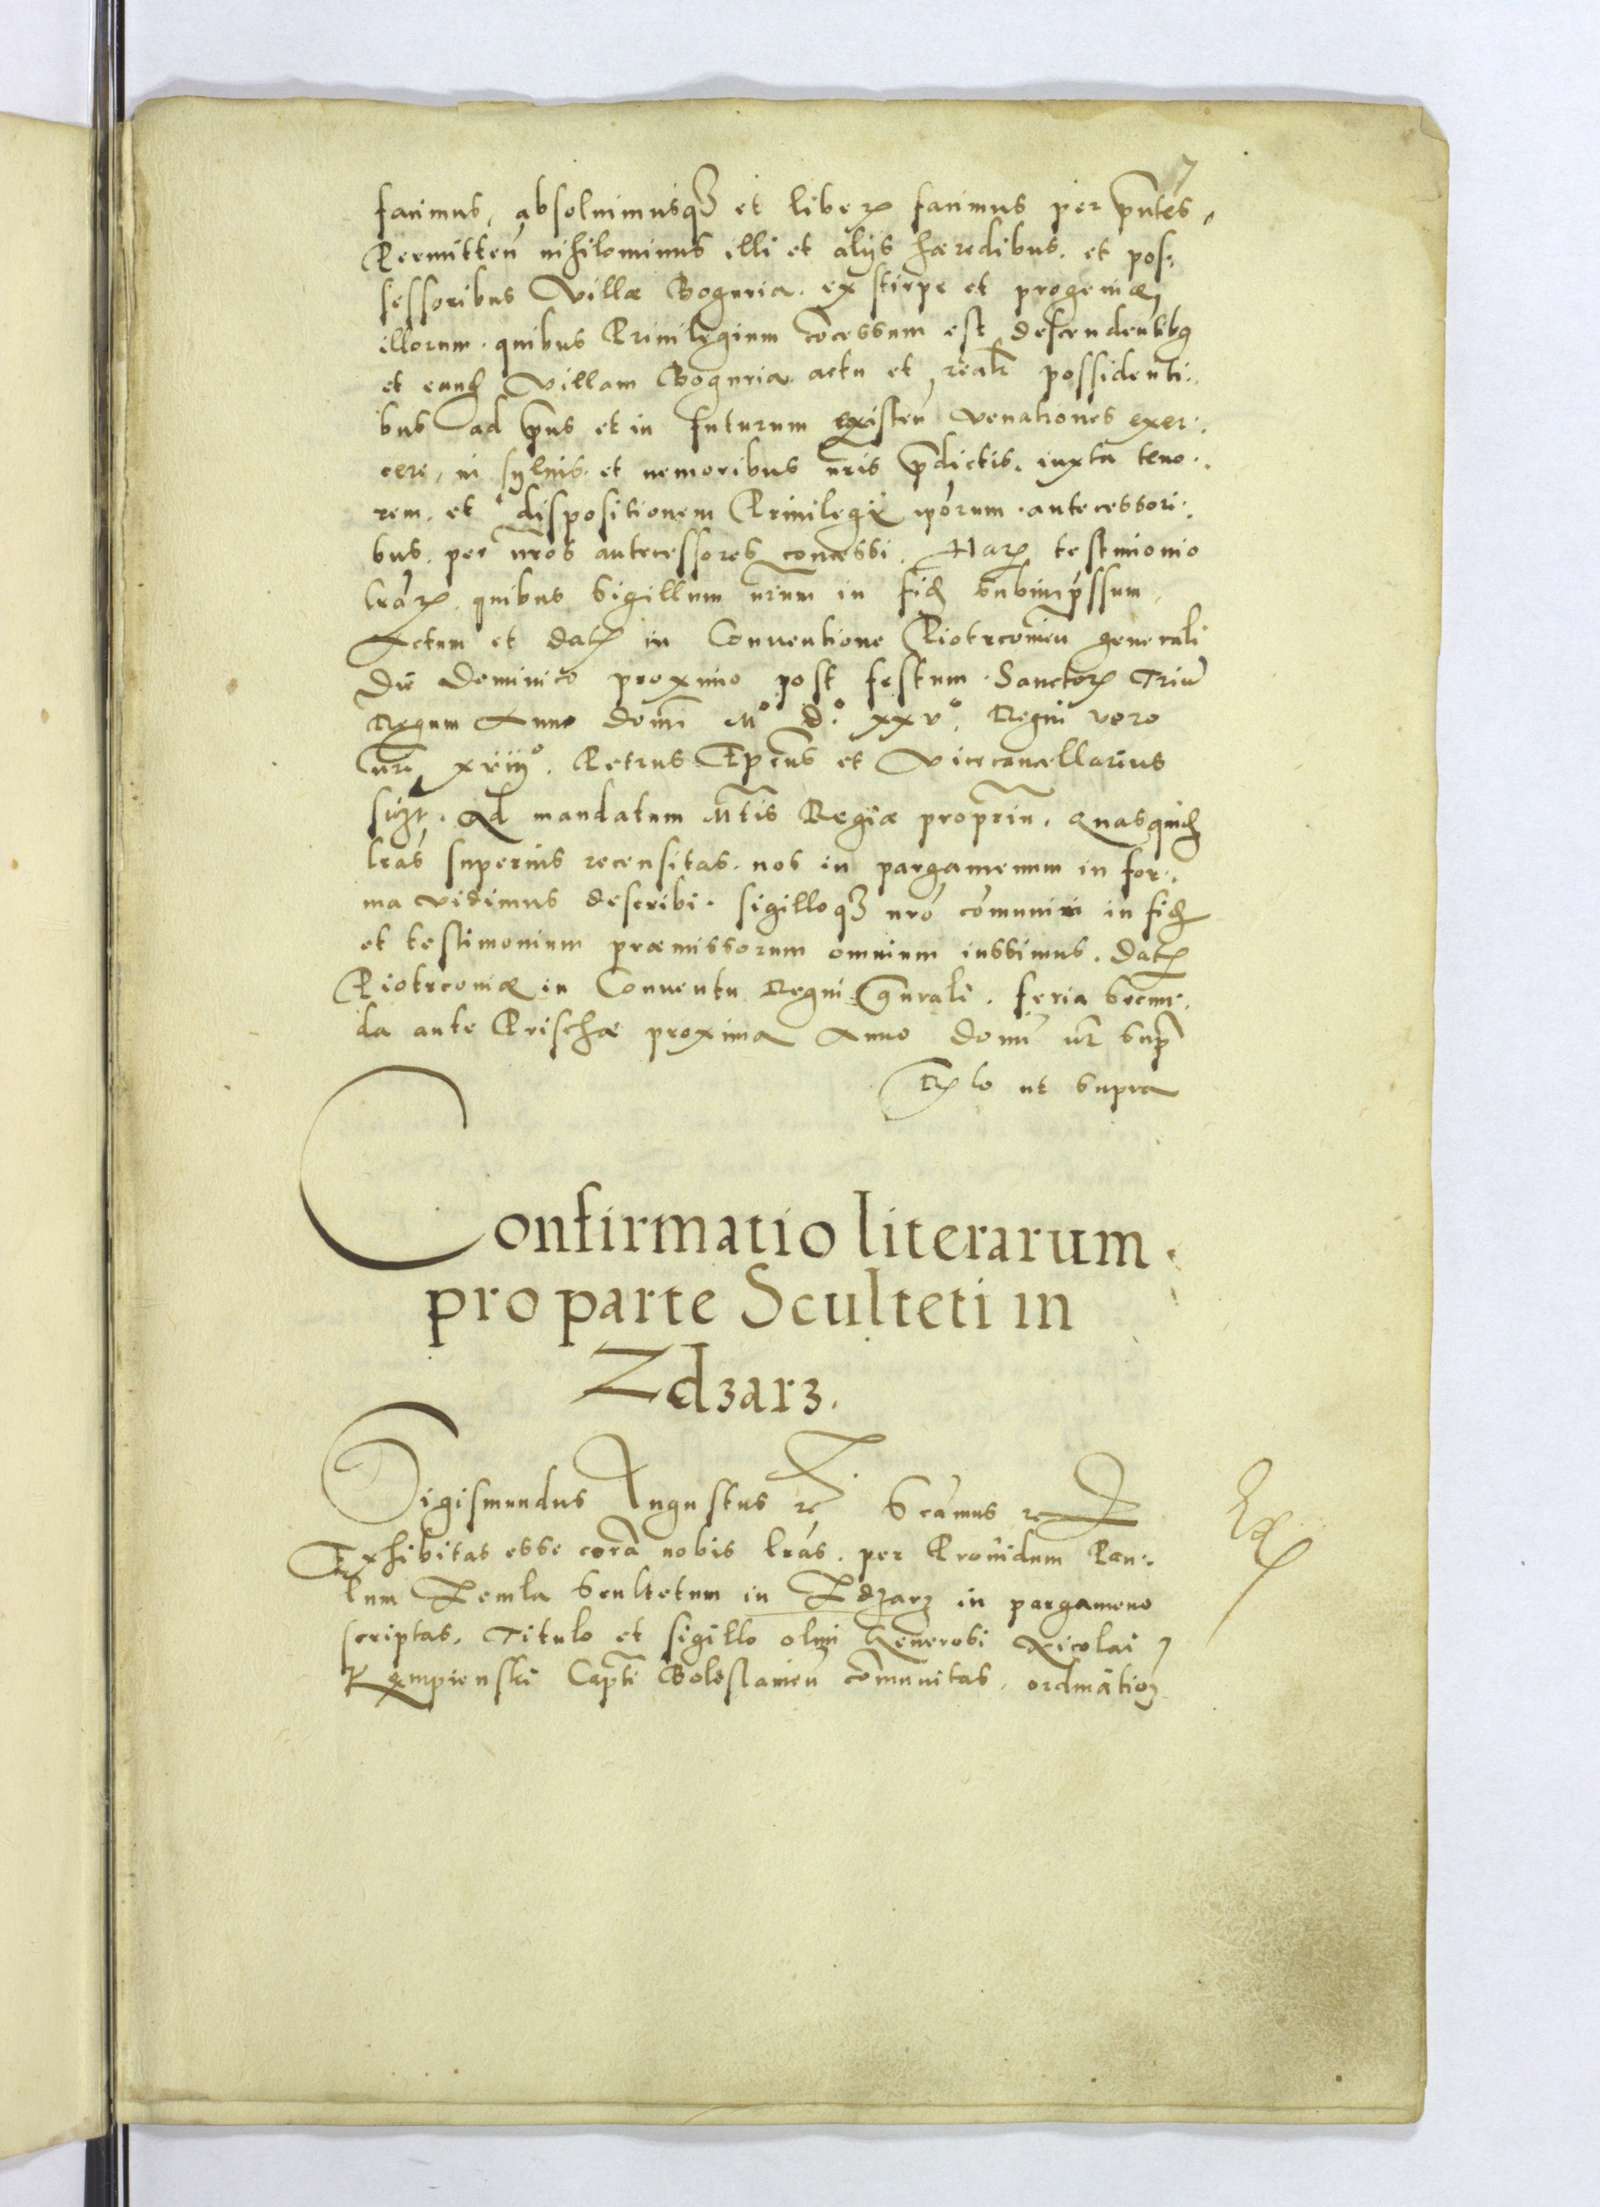 7
facimus, absoluimusq3 et liberꝝ facimus per pn̄tes,
Permitteñ nihilominus illi et alijs hæredibus et pos:
sessoribus Villæ Boguria ex stirpe et progeniæ
illorum quibus Priuilegium cōcessum est descendeñtibꝯ
et eand Villam Boguria actu et realr possidenti:
bus ad pn̄s et in futurum existeñ venationes exer:
cere, in syluis et nemoribus nr̄is p̄dictis, iuxta teno:
rem et dispositionem Priuilegij ip̄orum antecessori:
bus per nr̄os antecessores concessi. Harꝝ testimonio
lrārꝝ quibus Sigillum nr̄um in fid Subimpr̄ssum.
Actum et dat in Conuentione Piotrcouieñ generali
Die Dominico proximo post festum Sanctorꝝ Triū
Regum Anno Domī Mº Dº xxvº Regni vero
nr̄i xviijº. Petrus Ep̄cus et Vicecancellarius
sszt. Ad mandatum Mt̄is Regiæ proprīu. Quasquid
lrās superius recensitas nos in pargamenum in for:
ma vidimus describi sigilloq3 nrō cōmuniri in fid
et testimonium præmissorum omnium iussimus. Dat
Piotrcouiæ in Conuentu Regni gn̄rali. feria Secun:
da ante Prischæ proxima Anno Domī ut̄ Sup̄
Rlo ut Supra
Confirmatio literarum
pro parte Sculteti in
Zdzarz.
Sigismundus Augustus rc̄ Scāmus rc
Exhibitas esse corā nobis lrās per Prouidum Pau:
lum Zemla Scultetum in Zdzarz in pargameno
scriptas, Titulo et sigillo olim Generosi Nicolai
Kempienski Capt̄i Bolesłauieñ cōmunitas, ordinātioz